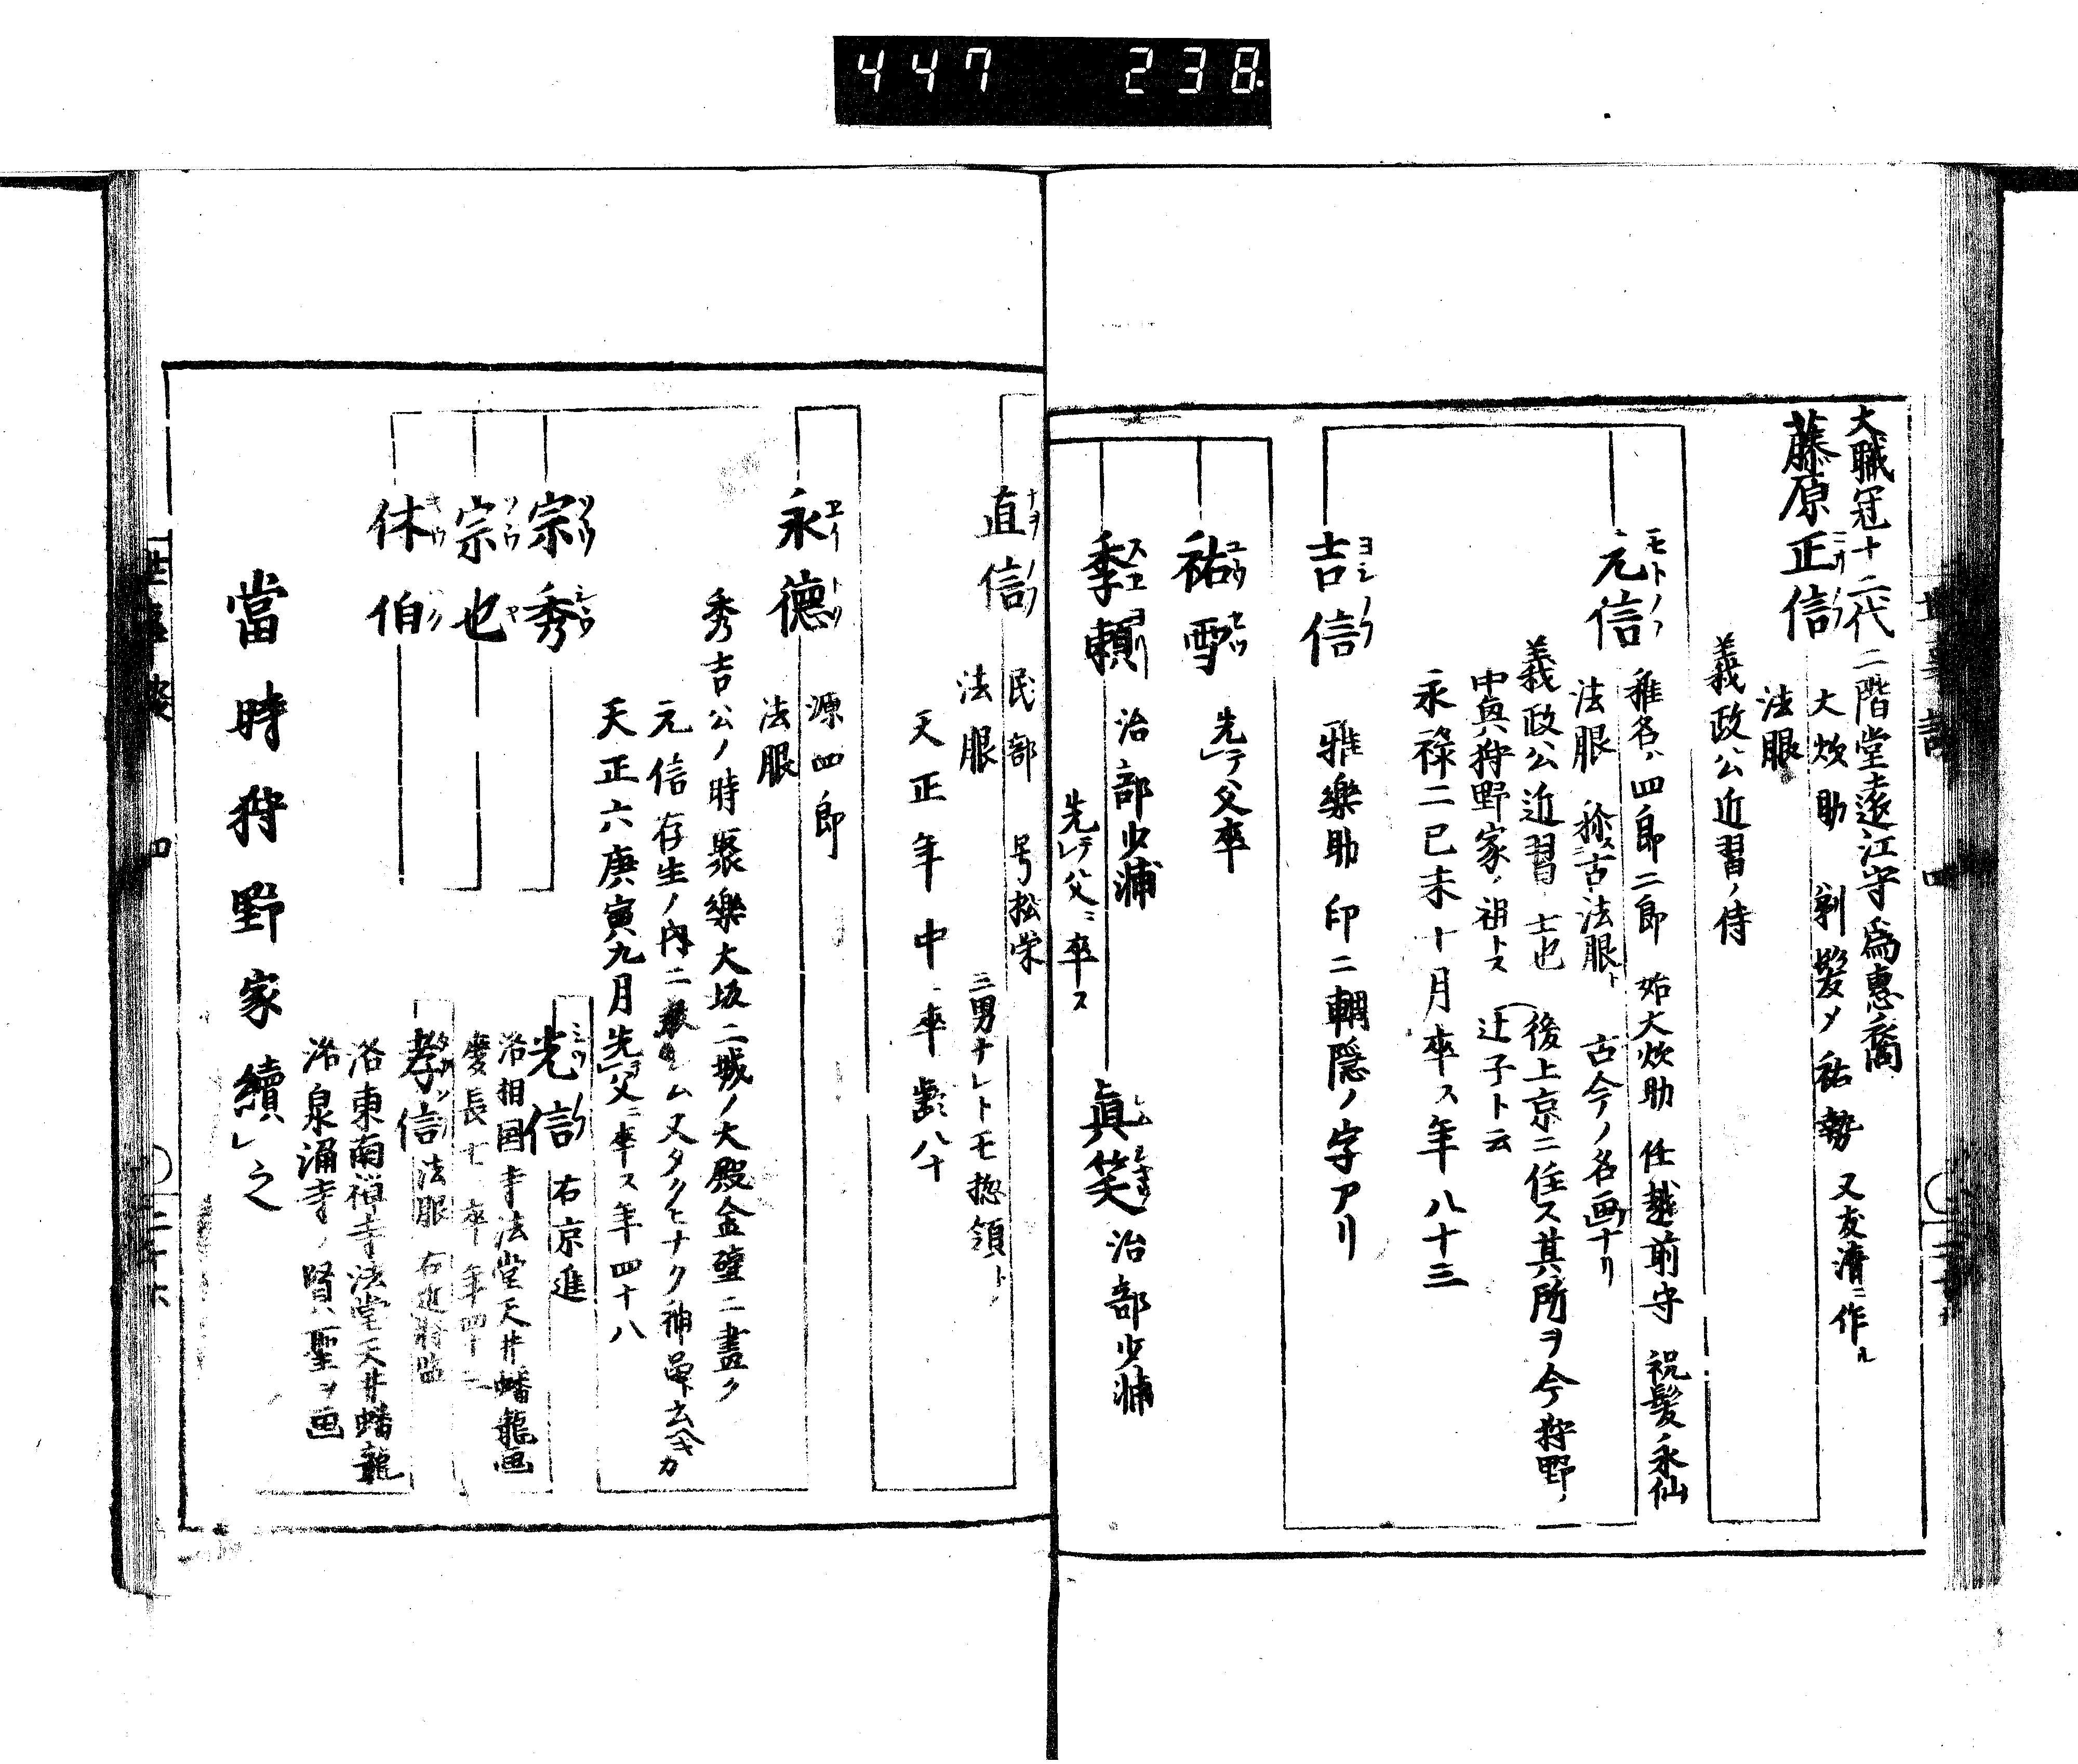 447 238
大職冠十二代二階堂遠江守為憲裔
藤原正信
大炊助 剃髪〆祐勢 又友清ニ作ル
法眼
義政公近習ノ侍
元信 モトノフ
稚名ハ四郎二郎 始大炊助 任越前守 祝髪永仙
法眼 称古法眼ト 古今ノ名画ナリ
義政公近習ノ士也 後上京ニ住ス其所ヲ今狩野ノ
辻子ト云
中興狩野家ノ祖トス
永禄二己未十月卒ス年八十三
吉信 ヨシノフ
雅樂助 印ニ輞隠ノ字アリ
祐雪 ユウセツ
先テ父卒
季頼 スエヨリ
治部少浦
先テ父ニ卒ス
眞笑
治部少浦
直信 ナヲノフ
民部 号松栄
法眼 三男ナレトモ惣領ト
天正年中卒齢八十
永徳 エイトク
源四郎
法眼
秀吉公ノ時聚樂大坂二城ノ大殿金壁ニ畫ク
元信存生ノ内ニ
天正六庚寅九月先父ニ卒ス年四十八
宗秀 ソウシウ
宗也 ソウヤ
休伯
光信 ミツノフ
右京進
洛相国寺法堂天井蟠龍画
慶長七 卒 年四十二
孝信 タカノフ
法眼 右近將監
洛東南禅寺法堂天井蟠龍
洛泉涌寺ノ賢聖ヲ画
當時狩野家續之